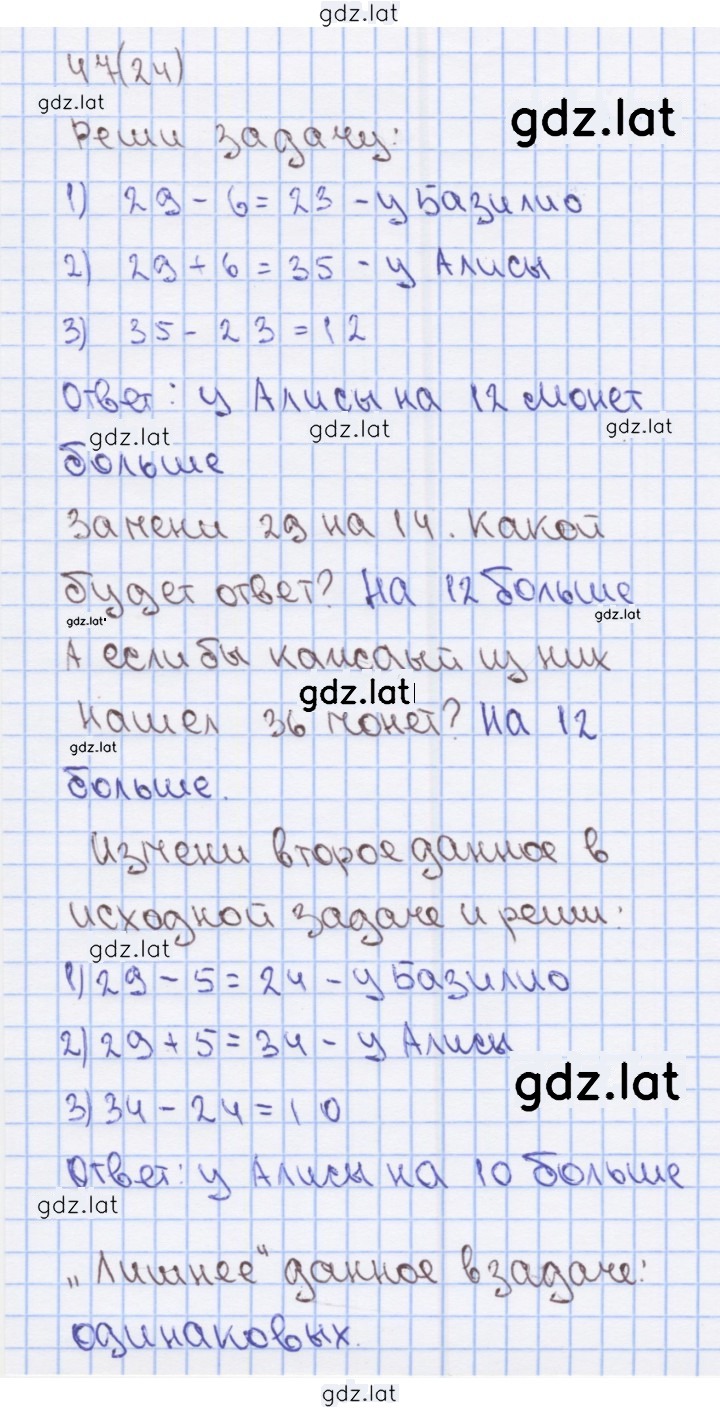 gdz.lat
47(24)
gdz.lat
gdz.lat
Реши задачу:
1) 29 - 6 = 23 - у Базилио
2) 29 + 6 = 35 - у Алисы
3) 35 - 23 = 12
Ответ: у Алисы на 12 монет
gdz.lat gdz.lat gdz.lat
больше
Замени 29 на 14. Какой
будет ответ? На 12 больше
gdz.lat gdz.lat
А если бы каждый из них
gdz.lat
нашел 36 монет? На 12
gdz.lat
больше.
Измени второе данное в
исходной задаче и реши:
gdz.lat
1) 29 - 5 = 24 - у Базилио
2) 29 + 5 = 34 - у Алисы
gdz.lat
3) 34 - 24 = 10
Ответ: у Алисы на 10 больше
gdz.lat
„Лишнее“ данное в задаче:
одинаковых.
gdz.lat